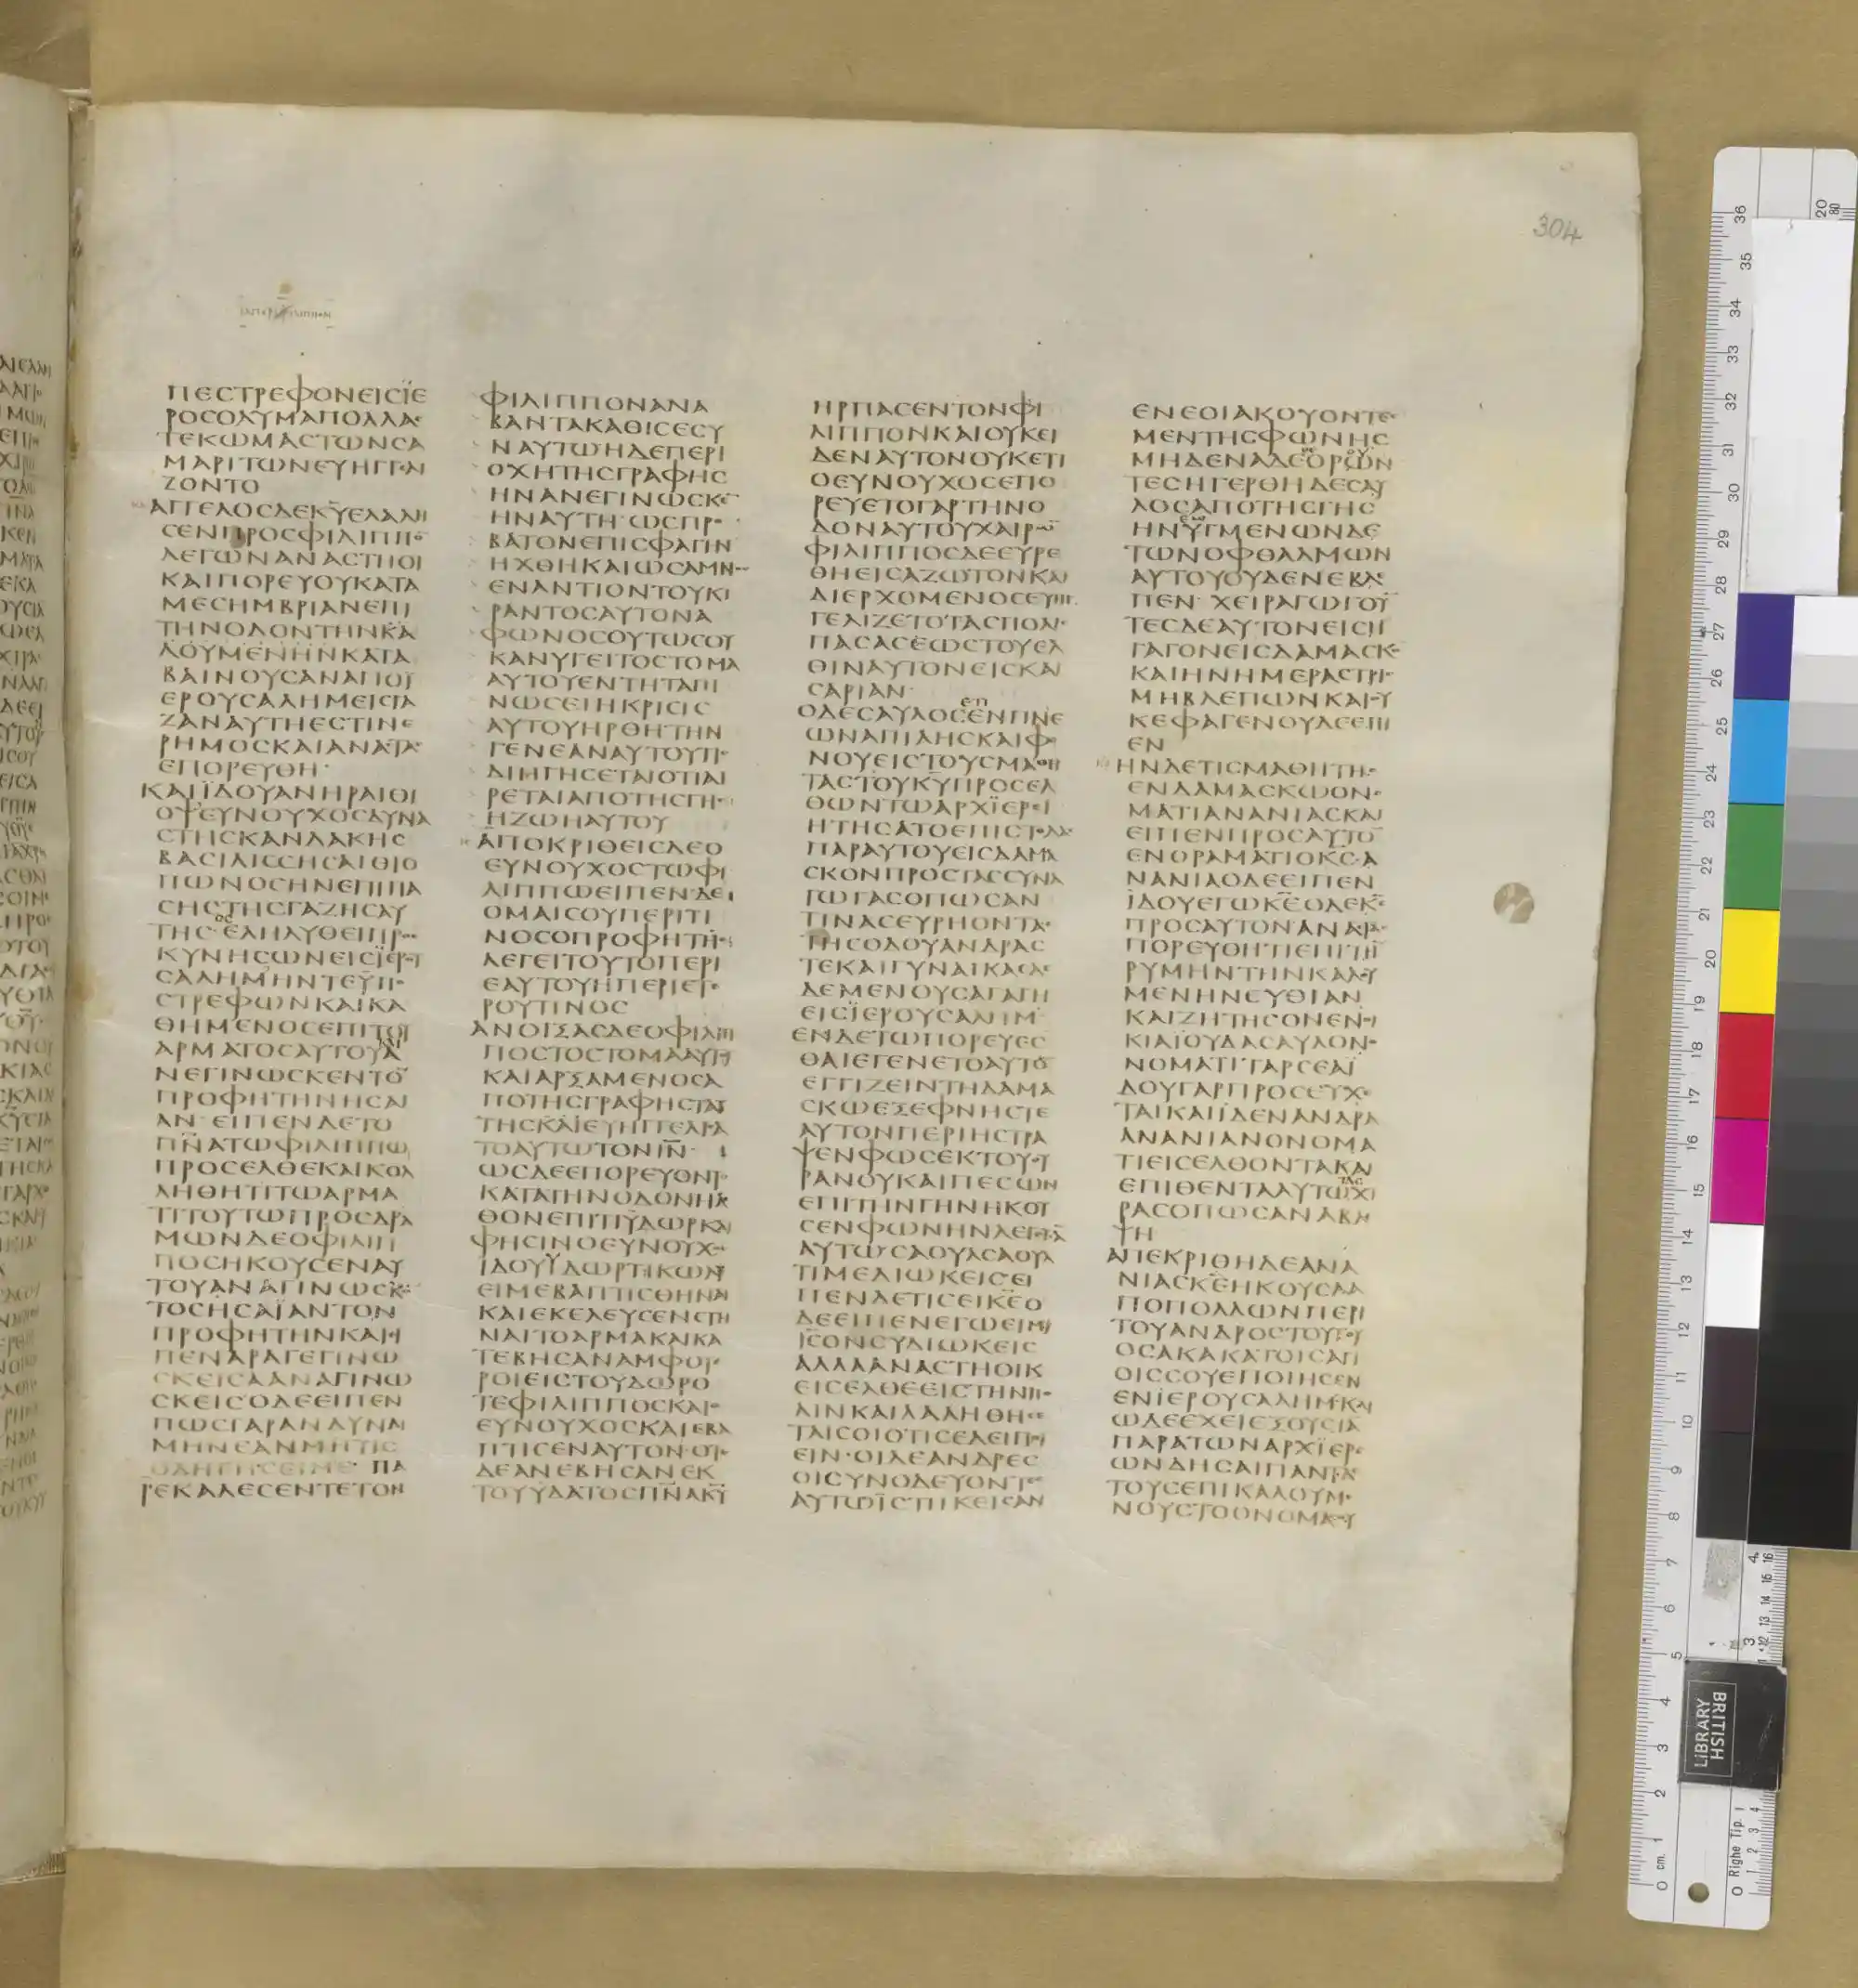 304
ΠΕϹΤΡΕΦΟΝΕΙϹΪΕ
ΡΟϹΟΛΥΜΑΠΟΛΛΑϹ
ΤΕΚΩΜΑϹΤΩΝϹΑ
ΜΑΡΙΤΩΝΕΥΗΓΓΕΛΙ
ΖΟΝΤΟ
ΑΓΓΕΛΟϹΔΕΚΥ̅ΕΛΑΛΗ
ϹΕΝΠΡΟϹΦΙΛΙΠΠΟ̅
ΛΕΓΩΝΑΝΑϹΤΗΘΙ
ΚΑΙΠΟΡΕΥΟΥΚΑΤΑ
ΜΕϹΗΜΒΡΙΑΝΕΠΙ
ΤΗΝΟΔΟΝΤΗΝΚΑ
ΛΟΥΜΕΝΗΝΚΑΤΑ
ΒΑΙΝΟΥϹΑΝΑΠΟΪ
ΕΡΟΥϹΑΛΗΜΕΙϹΓΑ
ΖΑΝΑΥΤΗΕϹΤΙΝΕ
ΡΗΜΟϹΚΑΙΑΝΑϹΤΑϹ
ΕΠΟΡΕΥΘΗ·
ΚΑΙΪΔΟΥΑΝΗΡΑΙΘΙ
ΟΨΕΥΝΟΥΧΟϹΔΥΝΑ
ϹΤΗϹΚΑΝΔΑΚΗϹ
ΒΑϹΙΛΙϹϹΗϹΑΙΘΙΟ
ΠΩΝΟϹΗΝΕΠΙΠΑ
ϹΗϹΤΗϹΓΑΖΗϹΑΥ
ΤΗϹΟϹΕΛΗΛΥΘΕΙΠΡΟϹ
ΚΥΝΗϹΩΝΕΙϹΪΕΡΟΥ
ϹΑΛΗΜΗΝΤΕΫΠΟ
ϹΤΡΕΦΩΝΚΑΙΚΑ
ΘΗΜΕΝΟϹΕΠΙΤΟΥ
ΑΡΜΑΤΟϹΑΥΤΟΥΑ
ΝΕΓΙΝΩϹΚΕΝΤΟ̅
ΠΡΟΦΗΤΗΝΗϹΑΪ
ΑΝ·ΕΙΠΕΝΔΕΤΟ
ΠΝ̅ΑΤΩΦΙΛΙΠΠΩ
ΠΡΟϹΕΛΘΕΚΑΙΚΟΛ
ΛΗΘΗΤΙΤΩΑΡΜΑ
ΤΙΤΟΥΤΩΠΡΟϹΔΡΑ
ΜΩΝΔΕΟΦΙΛΙΠ
ΠΟϹΗΚΟΥϹΕΝΑΥ
ΤΟΥΑΝΑΓΙΝΩϹΚΟ̅
ΤΟϹΗϹΑΪΑΝΤΟΝ
ΠΡΟΦΗΤΗΝΚΑΙΕΙ
ΠΕΝΑΡΑΓΕΓΙΝΩ
ϹΚΕΙϹΑΑΝΑΓΙΝΩ
ϹΚΕΙϹΟΔΕΕΙΠΕΝ
ΠΩϹΓΑΡΑΝΔΥΝΑΙ
ΜΗΝΕΑΝΜΗΤΙϹ
ΟΔΗΓΗϹΕΙΜΕ·ΠΑ
ΡΕΚΑΛΕϹΕΝΤΕΤΟΝ
ΦΙΛΙΠΠΟΝΑΝΑ
ΒΑΝΤΑΚΑΘΙϹΕϹΥ
ΝΑΥΤΩΗΔΕΠΕΡΙ
ΟΧΗΤΗϹΓΡΑΦΗϹ
ΗΝΑΝΕΓΙΝΩϹΚΕ̅
ΗΝΑΥΤΗ·ΩϹΠΡΟ
ΒΑΤΟΝΕΠΙϹΦΑΓΗΝ
ΗΧΘΗΚΑΙΩϹΑΜΝΟϹ
ΕΝΑΝΤΙΟΝΤΟΥΚΙ
ΡΑΝΤΟϹΑΥΤΟΝΑ
ΦΩΝΟϹΟΥΤΩϹΟΥ
ΚΑΝΥΓΕΙΤΟϹΤΟΜΑ
ΑΥΤΟΥΕΝΤΗΤΑΠΙ
ΝΩϹΕΙΗΚΡΙϹΙϹ
ΑΥΤΟΥΗΡΘΗΤΗΝ
ΓΕΝΕΑΝΑΥΤΟΥΤΙϹ
ΔΙΗΓΗϹΕΤΑΙΟΤΙΑΙ
ΡΕΤΑΙΑΠΟΤΗϹΓΗϹ
ΗΖΩΗΑΥΤΟΥ
ΑΠΟΚΡΙΘΕΙϹΔΕΟ
ΕΥΝΟΥΧΟϹΤΩΦΙ
ΛΙΠΠΩΕΙΠΕΝΔΕ
ΟΜΑΙϹΟΥΠΕΡΙΤΙ
ΝΟϹΟΠΡΟΦΗΤΗϹ
ΛΕΓΕΙΤΟΥΤΟΠΕΡΙ
ΕΑΥΤΟΥΗΠΕΡΙΕΤΕ
ΡΟΥΤΙΝΟϹ
ΑΝΟΙΞΑϹΔΕΟΦΙΛΙΠ
ΠΟϹΤΟϹΤΟΜΑΑΥΤΟΥ
ΚΑΙΑΡΞΑΜΕΝΟϹΑ
ΠΟΤΗϹΓΡΑΦΗϹΤΑΥ
ΤΗϹΚΑΙΕΥΗΓΓΕΛΙϹΑ
ΤΟΑΥΤΩΤΟΝΙΝ̅
ΩϹΔΕΕΠΟΡΕΥΟΝΤΟ
ΚΑΤΑΤΗΝΟΔΟΝΗΛ
ΘΟΝΕΠΙΤΙΫΔΩΡΚΑΙ
ΦΗϹΙΝΟΕΥΝΟΥΧΟϹ
ΪΔΟΥΫΔΩΡΤΙΚΩΛΥ
ΕΙΜΕΒΑΠΤΙϹΘΗΝΑΙ
ΚΑΙΕΚΕΛΕΥϹΕΝϹΤΗ
ΝΑΙΤΟΑΡΜΑΚΑΙΚΑ
ΤΕΒΗϹΑΝΑΜΦΟΤΕ
ΡΟΙΕΙϹΤΟΥΔΩΡΟ
ΤΕΦΙΛΙΠΠΟϹΚΑΙΟ
ΕΥΝΟΥΧΟϹΚΑΙΕΒΑ
ΠΤΙϹΕΝΑΥΤΟΝ·ΟΤΕ
ΔΕΑΝΕΒΗϹΑΝΕΚ
ΤΟΥΥΔΑΤΟϹΠΝ̅ΑΚΥ̅
ΗΡΠΑϹΕΝΤΟΝΦΙ
ΛΙΠΠΟΝΚΑΙΟΥΚΕΙ
ΔΕΝΑΥΤΟΝΟΥΚΕΤΙ
ΟΕΥΝΟΥΧΟϹΕΠΟ
ΡΕΥΕΤΟΓΑΡΤΗΝΟ
ΔΟΝΑΥΤΟΥΧΑΙΡΩ̅
ΦΙΛΙΠΠΟϹΔΕΕΥΡΕ
ΘΗΕΙϹΑΖΩΤΟΝΚΑΙ
ΔΙΕΡΧΟΜΕΝΟϹΕΥΗΓ
ΓΕΛΙΖΕΤΟΤΑϹΠΟΛΙϹ
ΠΑϹΑϹΕΩϹΤΟΥΕΛ
ΘΙΝΑΥΤΟΝΕΙϹΚΑΙ
ϹΑΡΙΑΝ·
ΟΔΕϹΑΥΛΟϹΕΝΠΝΕ
ΩΝΑΠΙΛΗϹΚΑΙΦΟ
ΝΟΥΕΙϹΤΟΥϹΜΑΘΗ
ΤΑϹΤΟΥΚΥ̅ΠΡΟϹΕΛ
ΘΩΝΤΩΑΡΧΪΕΡΕΙ
ΗΤΗϹΑΤΟΕΠΙϹΤΟΛΑϹ
ΠΑΡΑΥΤΟΥΕΙϹΔΑΜΑ
ϹΚΟΝΠΡΟϹΤΑϹϹΥΝΑ
ΓΩΓΑϹΟΠΩϹΑΝ
ΤΙΝΑϹΕΥΡΗΟΝΤΑϹ
ΤΗϹΟΔΟΥΑΝΔΡΑϹ
ΤΕΚΑΙΓΥΝΑΙΚΑϹΔΕ
ΔΕΜΕΝΟΥϹΑΓΑΓΗ
ΕΙϹΪΕΡΟΥϹΑΛΗΜ
ΕΝΔΕΤΩΠΟΡΕΥΕϹ
ΘΑΙΕΓΕΝΕΤΟΑΥΤΟ̅
ΕΓΓΙΖΕΙΝΤΗΔΑΜΑ
ϹΚΩΕΞΕΦΝΗϹΤΕ
ΑΥΤΟΝΠΕΡΙΗϹΤΡΑ
ΨΕΝΦΩϹΕΚΤΟΥΟΥ
ΡΑΝΟΥΚΑΙΠΕϹΩΝ
ΕΠΙΤΗΝΓΗΝΗΚΟΥ
ϹΕΝΦΩΝΗΝΛΕΓΟΥϹΑ̅
ΑΥΤΩϹΑΟΥΛϹΑΟΥΛ
ΤΙΜΕΔΙΩΚΕΙϹΕΙ
ΠΕΝΔΕΤΙϹΕΙΚΕ̅Ο
ΔΕΕΙΠΕΝΕΓΩΕΙΜΙ
ΙϹ̅ΟΝϹΥΔΙΩΚΕΙϹ
ΑΛΛΑΑΝΑϹΤΗΘΙΚ
ΕΙϹΕΛΘΕΕΙϹΤΗΝΠΟ
ΛΙΝΚΑΙΛΑΛΗΘΗϹΕ
ΤΑΙϹΟΙΟΤΙϹΕΔΕΙΠΟΙ
ΕΙΝ·ΟΙΔΕΑΝΔΡΕϹ
ΟΙϹΥΝΟΔΕΥΟΝΤΕϹ
ΑΥΤΩΪϹΤΙΚΕΙϹΑΝ
ΕΝΕΟΙΑΚΟΥΟΝΤΕϹ
ΜΕΝΤΗϹΦΩΝΗϹ
ΜΗΔΕΝΑΔΕΟΡΩΝ
ΤΕϹΗΓΕΡΘΗΔΕϹΑΥ
ΛΟϹΑΠΟΤΗϹΓΗϹ
ΗΝΥΓΜΕΝΩΝΔΕ
ΤΩΝΟΦΘΑΛΜΩΝ
ΑΥΤΟΥΟΥΔΕΝΕΒΛΕ
ΠΕΝ·ΧΕΙΡΑΓΩΓΟΥ̅
ΤΕϹΔΕΑΥΤΟΝΕΙϹΗ
ΓΑΓΟΝΕΙϹΔΑΜΑϹΚΟ̅
ΚΑΙΗΝΗΜΕΡΑϹΤΡΙϹ
ΜΗΒΛΕΠΩΝΚΑΙΟΥ
ΚΕΦΑΓΕΝΟΥΔΕΕΠΙ
ΕΝ
ΗΝΔΕΤΙϹΜΑΘΗΤΗϹ
ΕΝΔΑΜΑϹΚΩΟΝΟ
ΜΑΤΙΑΝΑΝΙΑϹΚΑΙ
ΕΙΠΕΝΠΡΟϹΑΥΤΟ̅
ΕΝΟΡΑΜΑΤΙΟΚϹ̅Α
ΝΑΝΙΑΟΔΕΕΙΠΕΝ
ΪΔΟΥΕΓΩΚΕ̅ΟΔΕΚϹ̅
ΠΡΟϹΑΥΤΟΝΑΝΑϹΤΑϹ
ΠΟΡΕΥΘΗΤΙΕΠΙΤΗ̅
ΡΥΜΗΝΤΗΝΚΑΛΟΥ
ΜΕΝΗΝΕΥΘΙΑΝ
ΚΑΙΖΗΤΗϹΟΝΕΝΟΙ
ΚΙΑΪΟΥΔΑϹΑΥΛΟΝΟ
ΝΟΜΑΤΙΤΑΡϹΕΑΪ
ΔΟΥΓΑΡΠΡΟϹΕΥΧΕ
ΤΑΙΚΑΙΪΔΕΝΑΝΔΡΑ
ΑΝΑΝΙΑΝΟΝΟΜΑ
ΤΙΕΙϹΕΛΘΟΝΤΑΚΑΙ
ΕΠΙΘΕΝΤΑΑΥΤΩΧΙ
ΡΑϹΟΠΩϹΑΝΑΒΛΕ
ΨΗ
ΑΠΕΚΡΙΘΗΔΕΑΝΑ
ΝΙΑϹΚΕ̅ΗΚΟΥϹΑΑ
ΠΟΠΟΛΛΩΝΠΕΡΙ
ΤΟΥΑΝΔΡΟϹΤΟΥΤΟΥ
ΟϹΑΚΑΚΑΤΟΙϹΑΓΙ
ΟΙϹϹΟΥΕΠΟΙΗϹΕΝ
ΕΝΪΕΡΟΥϹΑΛΗΜΚΑΙ
ΩΔΕΕΧΕΙΕΞΟΥϹΙΑ̅
ΠΑΡΑΤΩΝΑΡΧΪΕΡΕ
ΩΝΔΗϹΑΙΠΑΝΤΑϹ
ΤΟΥϹΕΠΙΚΑΛΟΥΜΕ
ΝΟΥϹΤΟΟΝΟΜΑϹΟΥ
BRITISH
LIBRARY